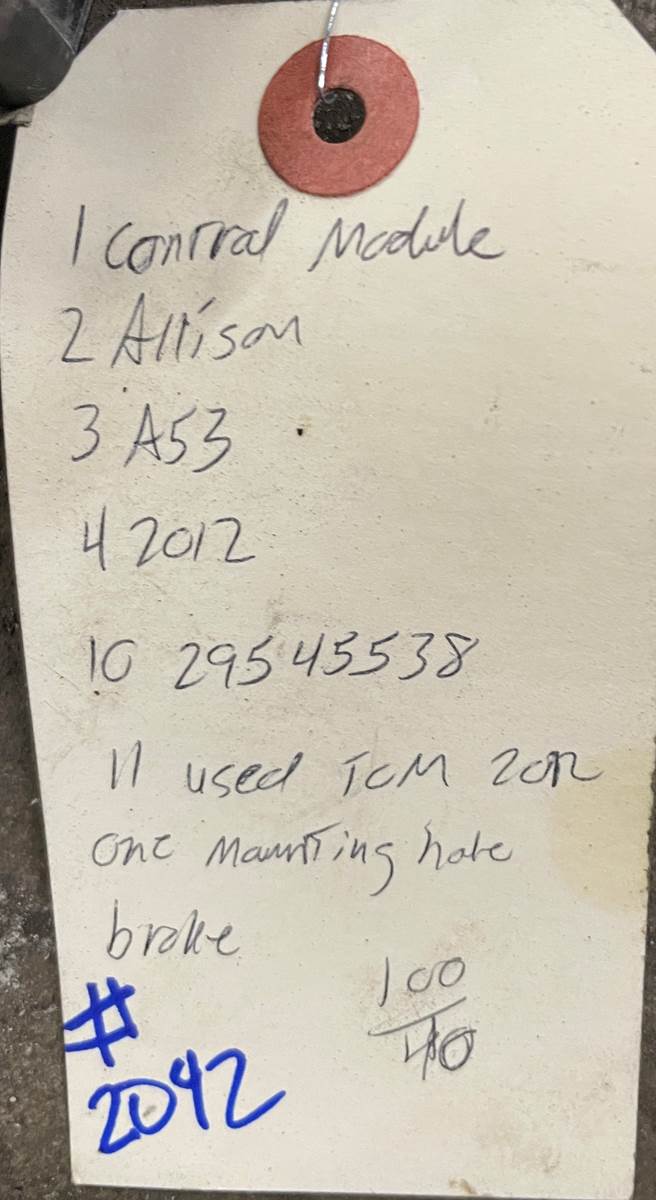 1 Control Module
2 Allison
3 A53
4 2012
10 29545538
11 used TCM 2012
one Mounting hole
broke
100
40
#
2042